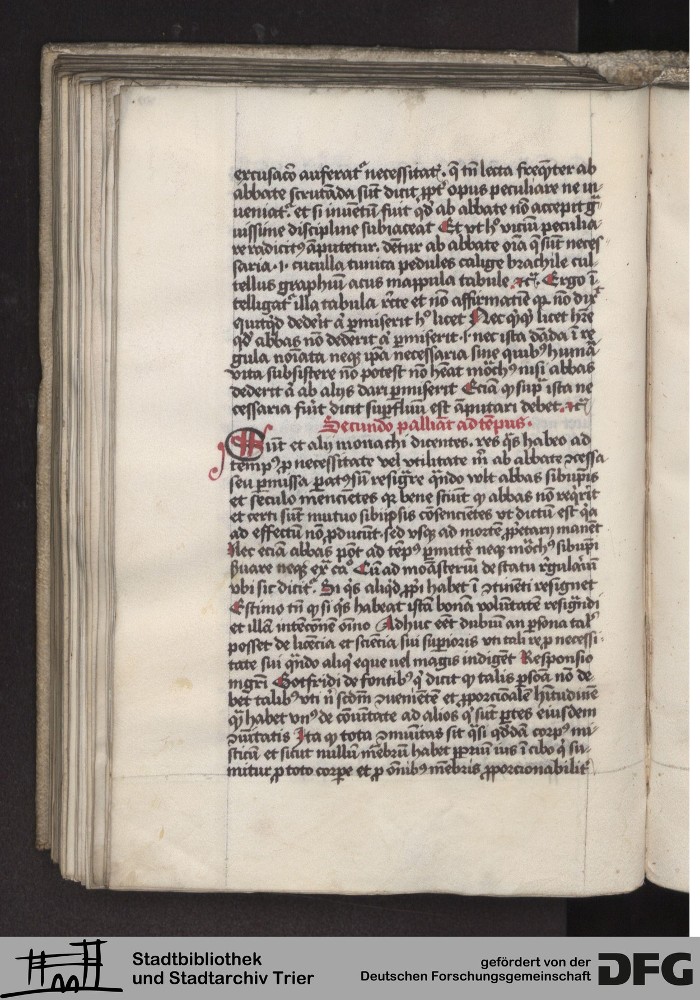 excusaco auferat necessitat. q tn lecta freqnter ab
abbate scrutada sut dicit ppt opus peculiare ne in-
ueniat. et si inuetu fuit qd ab abbate no accepit gra
uissime discipline subiaceat Et vt hoc viciu peculia-
re radicit9 aputetur. detur ab abbate oia q sut neces
saria .i. cuculla tunica pedules calige brachile cul
tellus graphiu acus mappula tabule etc. Ergo i-
telligat illa tabula rcte et no affirmatie qr no dix
quitqd dederit a pmiserit hoc licet Nec qqz licet hre
qd abbas no dederit a pmiserit .i. nec ista dada i re
gula noiata neqz ipa necessaria sine quib9 huma
vita subsistere no potest no heat moch9 nisi abbas
dederit a ab alijs dari pmiserit Ecia q sup ista ne
cessaria fuit dicit supfluu est aputari debet. etc
Secundo palliat ad tepus.
Sunt et alij monachi dicentes. res qs habeo ad
temp9 p necessitate vel utilitate m ab abbate ocessa
seu pmissa paratus su resigre qndo volt abbas sibiipis
et seculo mencietes qr bene sciut q abbas no reqrit
et certi sut mutuo sibiipsis cosencietes vt dictu est qa
ad effectu no pducut. sed vsqz ad morte ppetarij manet
Nec ecia abbas pot ad tep9 pmitte neqz moch9 sibiipi
Cu ad moasteriu de statu rgulariu
vbi sic dicit. Si qs aliqd ppi habet i otineti resignet
Estimo tn q si qs habeat ista bona volutate resigndi
et illa intecone omno Adhuc eet dubiu an psona tal
posset de licecia et sciecia sui supioris vti tali re p necessi-
tate sui qndo aliq eque uel magis indiget Responsio
mgri Gotfridi de fontib9 q dicit q talis psoa no de
bet talib9 vti n scdm oueniete et pporcionale hitudine
qua habet vn9 de couitate ad alios q sut ptes eiusdem
ouitatis Ita q tota omuitas sit qsi qdda corp9 mi
sticu et sicut nullu mebru habet ppriu ius i cibo q su-
mitur p toto corpe et p omib9 mebris pporcionabilit
Stadtbibliothek
und Stadtarchiv Trier
gefördert von der
Deutschen Forschungsgemeinschaft
DFG